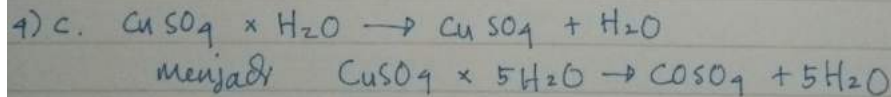 4) c. Cu SO4 × H2O → Cu SO4 + H2O
Menjadi CuSO4 × 5H2O → COSO4 + 5H2O